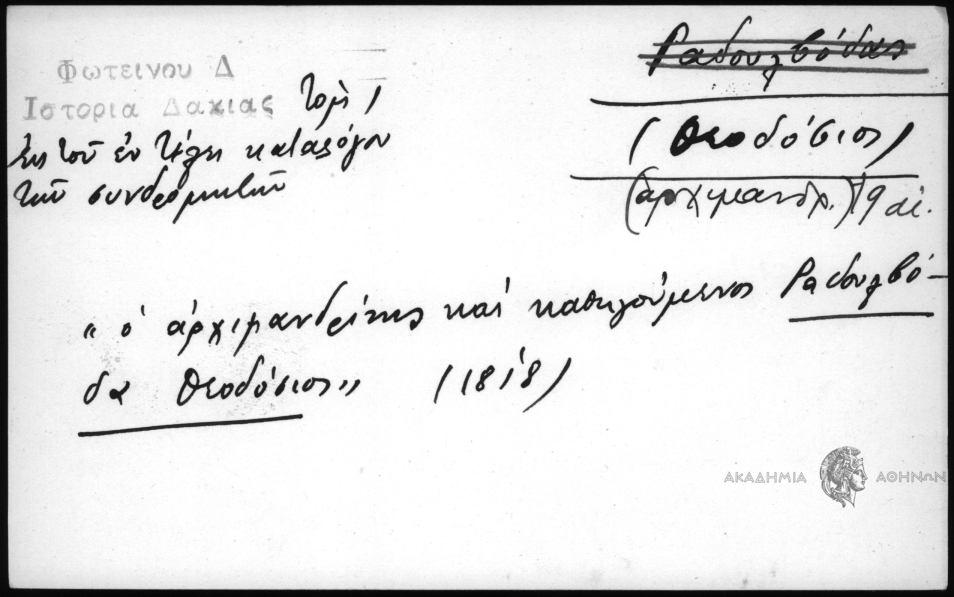 Φωτεινου Δ
Ιστορια Δακιας Τομ. 1
Ἐκ τοῦ ἐν τέλει καταλόγου
τῶν συνδρομητῶν
Ραδουλβόδας
(Θεοδόσιος)
(ἀρχιμανδρ.) 19 αἰ.
„ ὁ ἀρχιμανδρίτης καὶ καθηγούμενος Ραδουλβό-
δα Θεοδόσιος" (1818)
ΑΚΑΔΗΜΙΑ ΑΘΗΝΩΝ